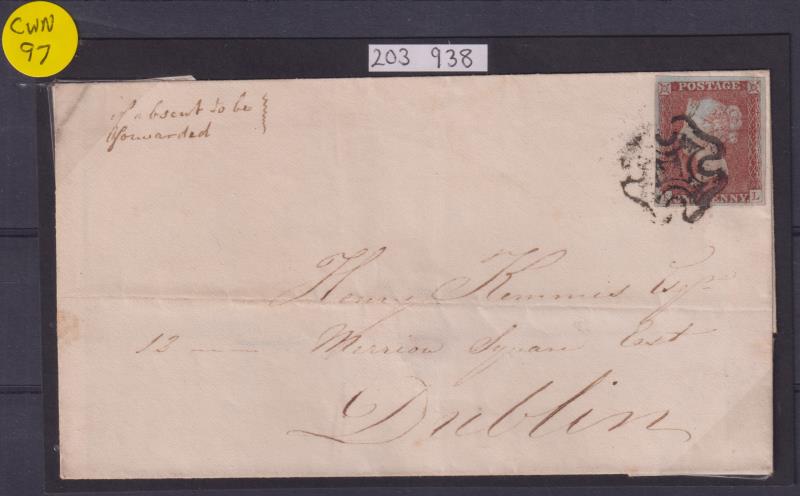 CWN
97
203 938
if absent to be
forwarded
POSTAGE
PENNY
L
Henry Kemmis Esqr
12 — Merrion Square East
Dublin